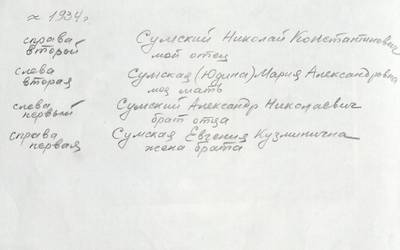 ≈ 1934г
справа второй Сумский Николай Константинович
мой отец
слева вторая Сумская (Юдина) Мария Александровна
моя мать
слева первый Сумский Александр Николаевич
брат отца
справа первая Сумская Евгения Кузминична
жена брата